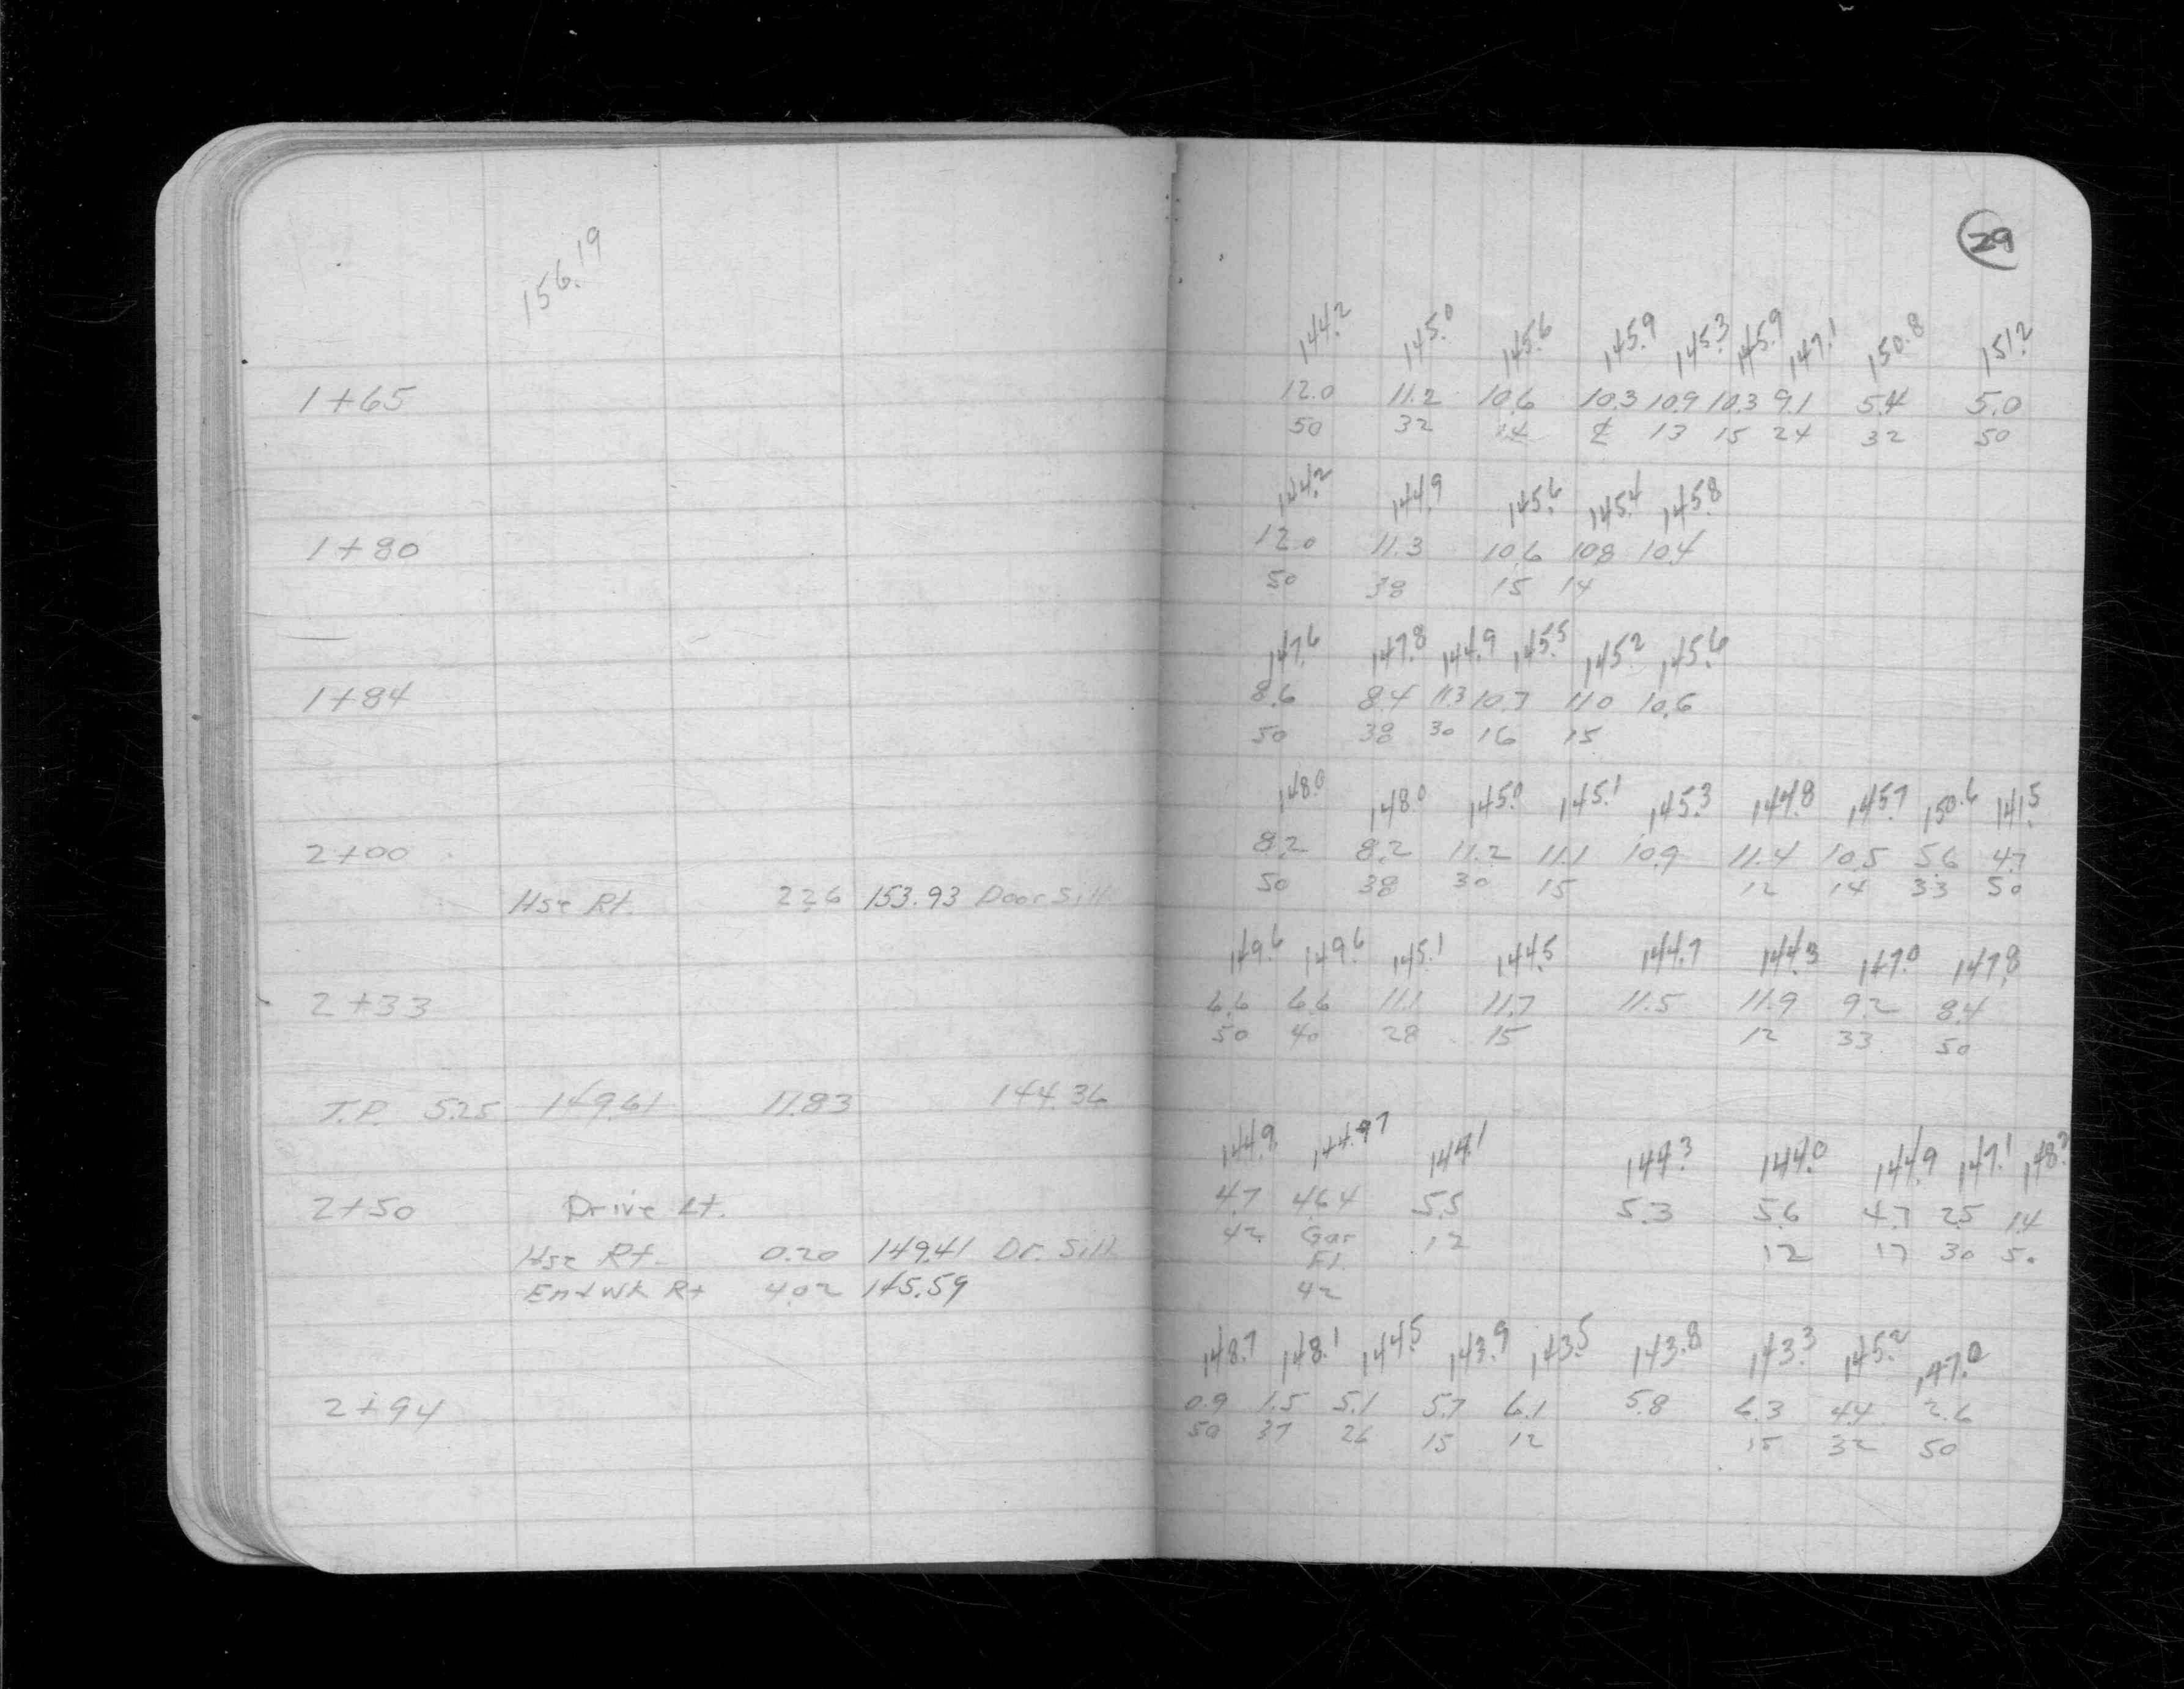 29
156.19
144.2 145.0 145.6 145.9 145.3 145.9 147.1 150.8 151.2
1+65 12.0 11.2 10.6 10.3 10.9 10.3 9.1 5.4 5.0
50 32 14 ℄ 13 15 24 32 50
144.2 144.9 145.6 145.4 145.8
1+80 12.0 11.3 10.6 10.8 10.4
50 38 15 14
147.6 147.8 144.9 145.5 145.2 145.6
1+84 8.6 8.4 11.3 10.7 11.0 10.6
50 38 30 16 15
148.0 148.0 145.0 145.1 145.3 144.8 145.7 150.6 141.5
2+00 8.2 8.2 11.2 11.1 10.9 11.4 10.5 5.6 4.7
Hse Rt. 2.26 153.93 Door Sill 50 38 30 15 12 14 33 50
149.6 149.6 145.1 144.5 144.7 144.3 147.0 147.8
2+33 6.6 6.6 11.1 11.7 11.5 11.9 9.2 8.4
50 40 28 15 12 33 50
T.P. 5.25 149.61 11.83 144.36
144.9 144.97 144.1 144.3 144.0 144.9 147.1
2+50 Drive Lt. 4.7 4.64 5.5 5.3 5.6 4.7 2.5 1.4
Hse Rt. 0.20 149.41 Dr. Sill 42 Gar 12 12 17 30 50
Fl.
End Wk Rt 4.02 145.59 42
148.7 148.1 144.5 143.9 143.5 143.8 143.3 145.2 147.0
2+94 0.9 1.5 5.1 5.7 6.1 5.8 6.3 4.4 2.6
50 37 26 15 12 15 32 50